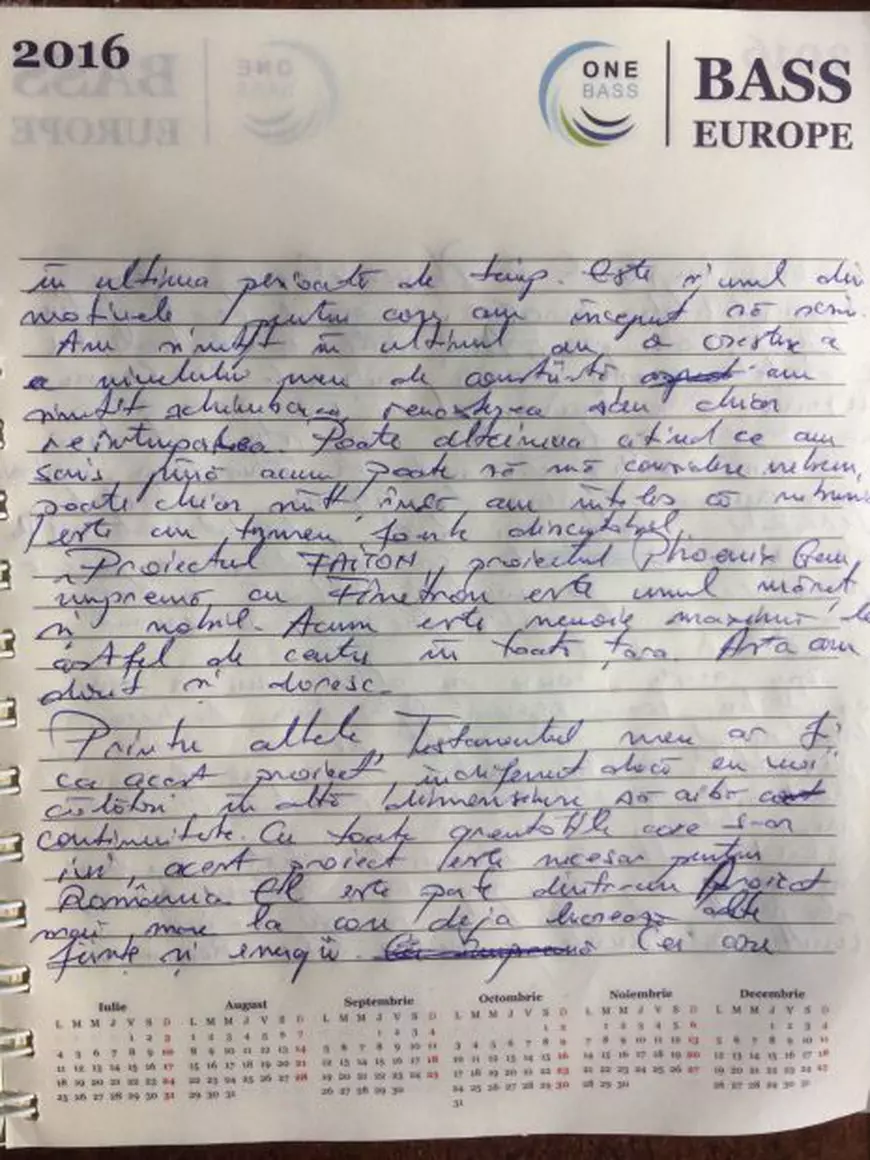 2016
ONE
BASS
BASS
EUROPE
în ultima perioadă de timp. Este și unul din
motivele pentru care am început să scriu.
Am simțit în ultimul an o creștere a
a nivelului meu de conștiință am
simțit schimbarea, renașterea sau chiar
reîntruparea. Poate altcineva citind ce am
scris până acum poate să mă considere nebun,
poate chiar sunt însă am înțeles că nebunia
este un termen foarte discutabil.
Proiectul FAITON, proiectul Phoenix
împreună cu este unul măreț
și nobil. Acum este nevoie
astfel de centre în toată țara. Asta am
dorit și doresc.
Printre altele, Testamentul meu ar fi
ca acest proiect, indiferent dacă eu voi
călători în altă dimensiune să aibă
continuitate. Cu toate greutățile care s-or
ivi, acest proiect este necesar pentru
România. El este parte dintr-un Proiect
mai mare la care deja lucrează alte
ființe și energii. Cei care
Iulie August Septembrie Octombrie Noiembrie Decembrie
L M M J V S D L M M J V S D L M M J V S D L M M J V S D L M M J V S D L M M J V S D
1 2 3 1 2 3 4 5 6 7 1 2 3 4 1 2 1 2 3 4 5 6 1 2 3 4
4 5 6 7 8 9 10 8 9 10 11 12 13 14 5 6 7 8 9 10 11 3 4 5 6 7 8 9 7 8 9 10 11 12 13 5 6 7 8 9 10 11
11 12 13 14 15 16 17 15 16 17 18 19 20 21 12 13 14 15 16 17 18 10 11 12 13 14 15 16 14 15 16 17 18 19 20 12 13 14 15 16 17 18
18 19 20 21 22 23 24 22 23 24 25 26 27 28 19 20 21 22 23 24 25 17 18 19 20 21 22 23 21 22 23 24 25 26 27 19 20 21 22 23 24 25
25 26 27 28 29 30 31 29 30 31 26 27 28 29 30 24 25 26 27 28 29 30 28 29 30 26 27 28 29 30 31
31